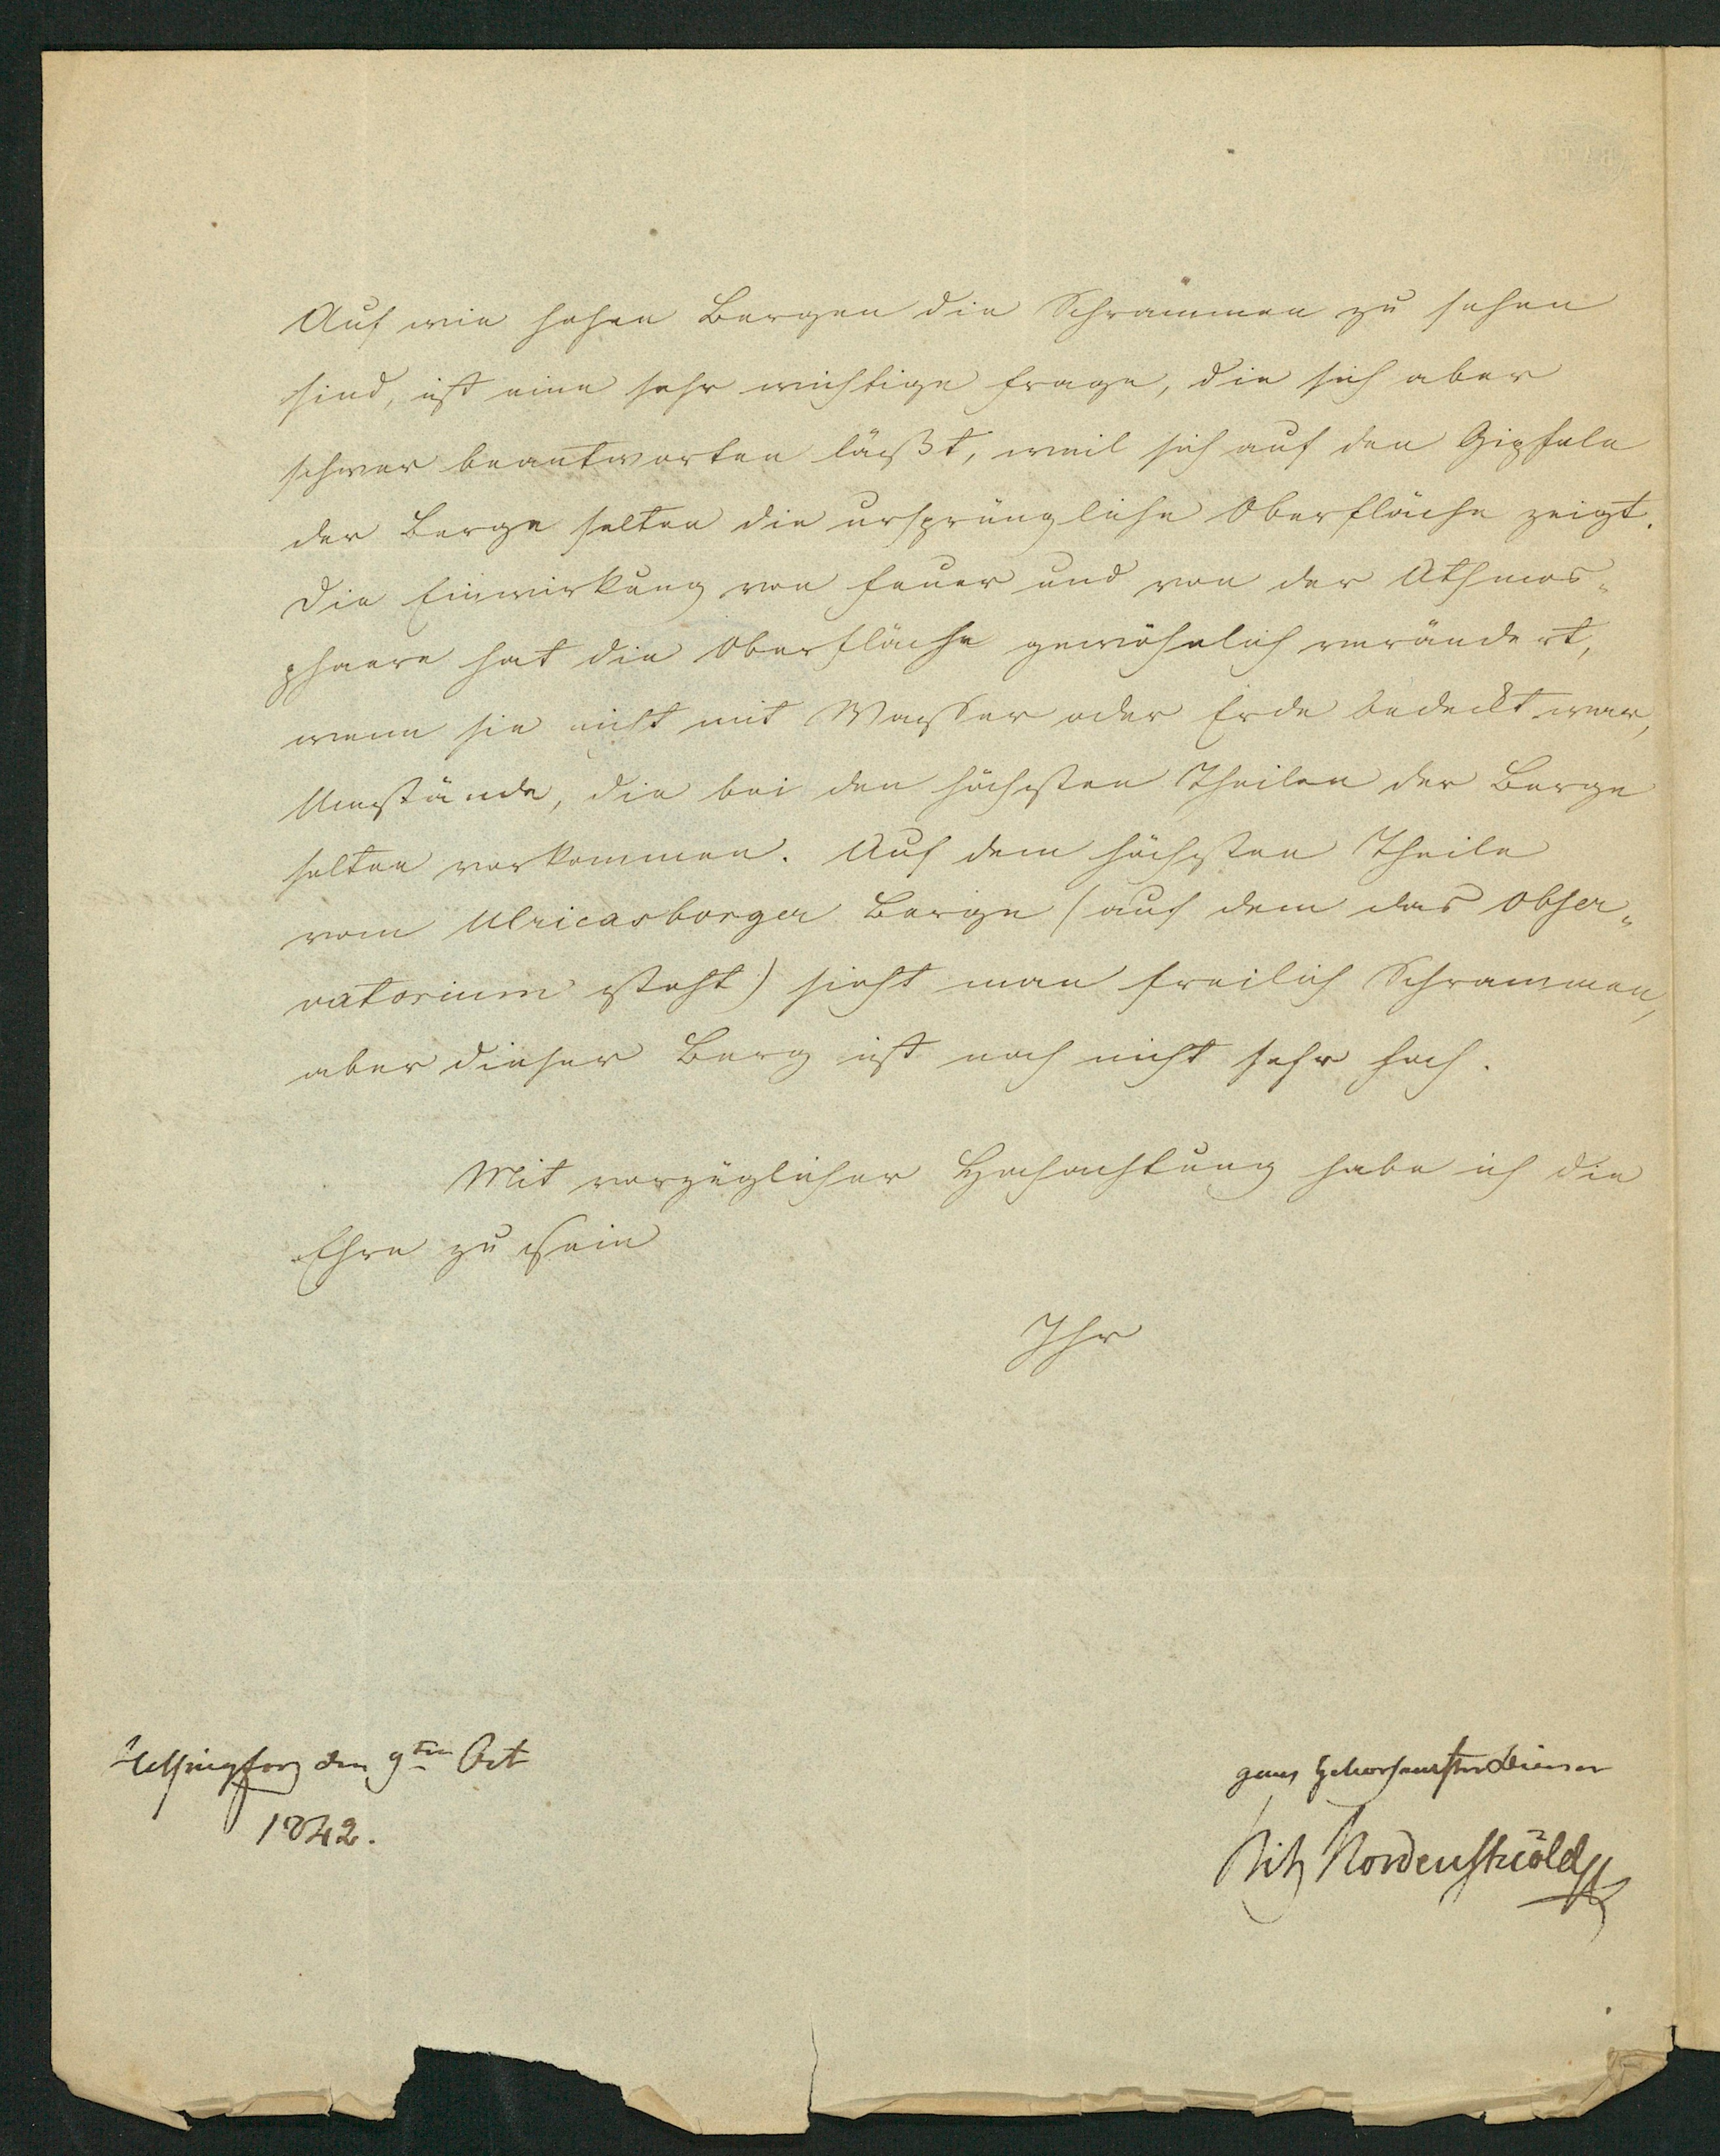 Auf wie hohen Bergen die Schrammen zu sehen
sind, ist eine sehr wichtige Frage, die sich aber
schwer beantworten läßt, weil sich auf den Gipfeln
der Berge selten die ursprüngliche Oberfläche zeigt.
Die Einwirkung von Feuer und von der Athmos-
phaere hat die Oberfläche gewöhnlich verändert,
wenn sie nicht mit Wasser oder Erde bedeckt war,
Umstände, die bei den höchsten Theilen der Berge
selten vorkommen. Auf dem höchsten Theile
vom Ulricasborger Berge (auf dem das Obser-
vatorium steht) sieht man freilich Schrammen,
aber dieser Berg ist noch nicht sehr hoch.
Mit vorzüglicher Hochachtung habe ich die
Ehre zu sein
Ihr
Helsingfors den 9ten Oct
1842.
ganz gehorsamster Diener
Nils Nordenskiöld